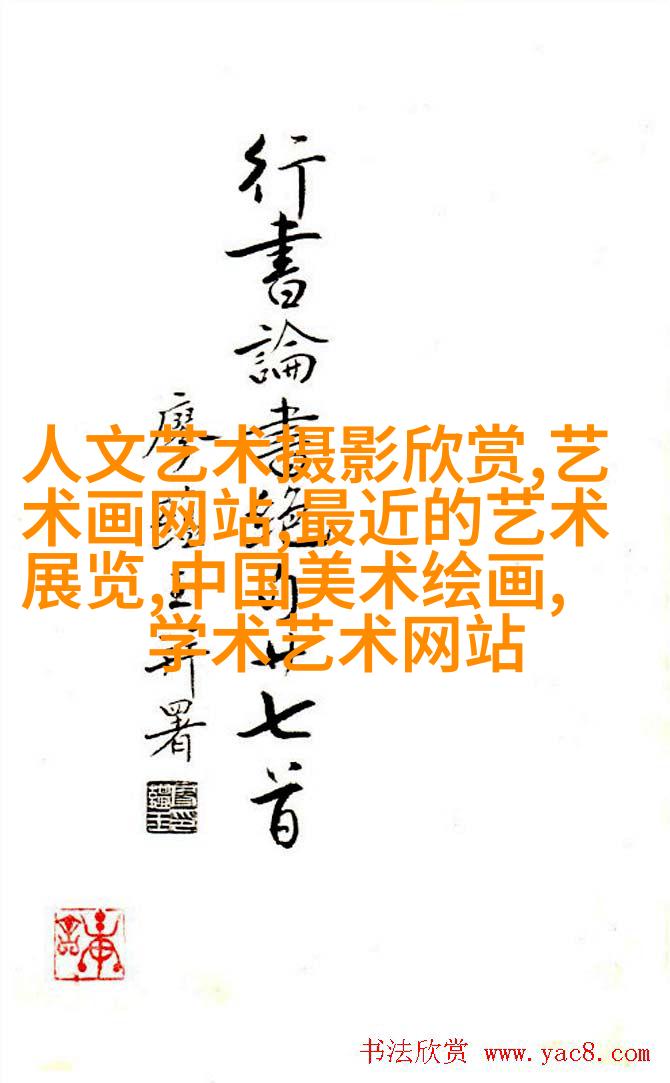 行書論書絶句廿七首
廖蘊玉并署
人文艺术摄影欣赏,艺
术画网站,最近的艺术
展览,中国美术绘画,
学术艺术网站
书法欣赏 www.yac8.com